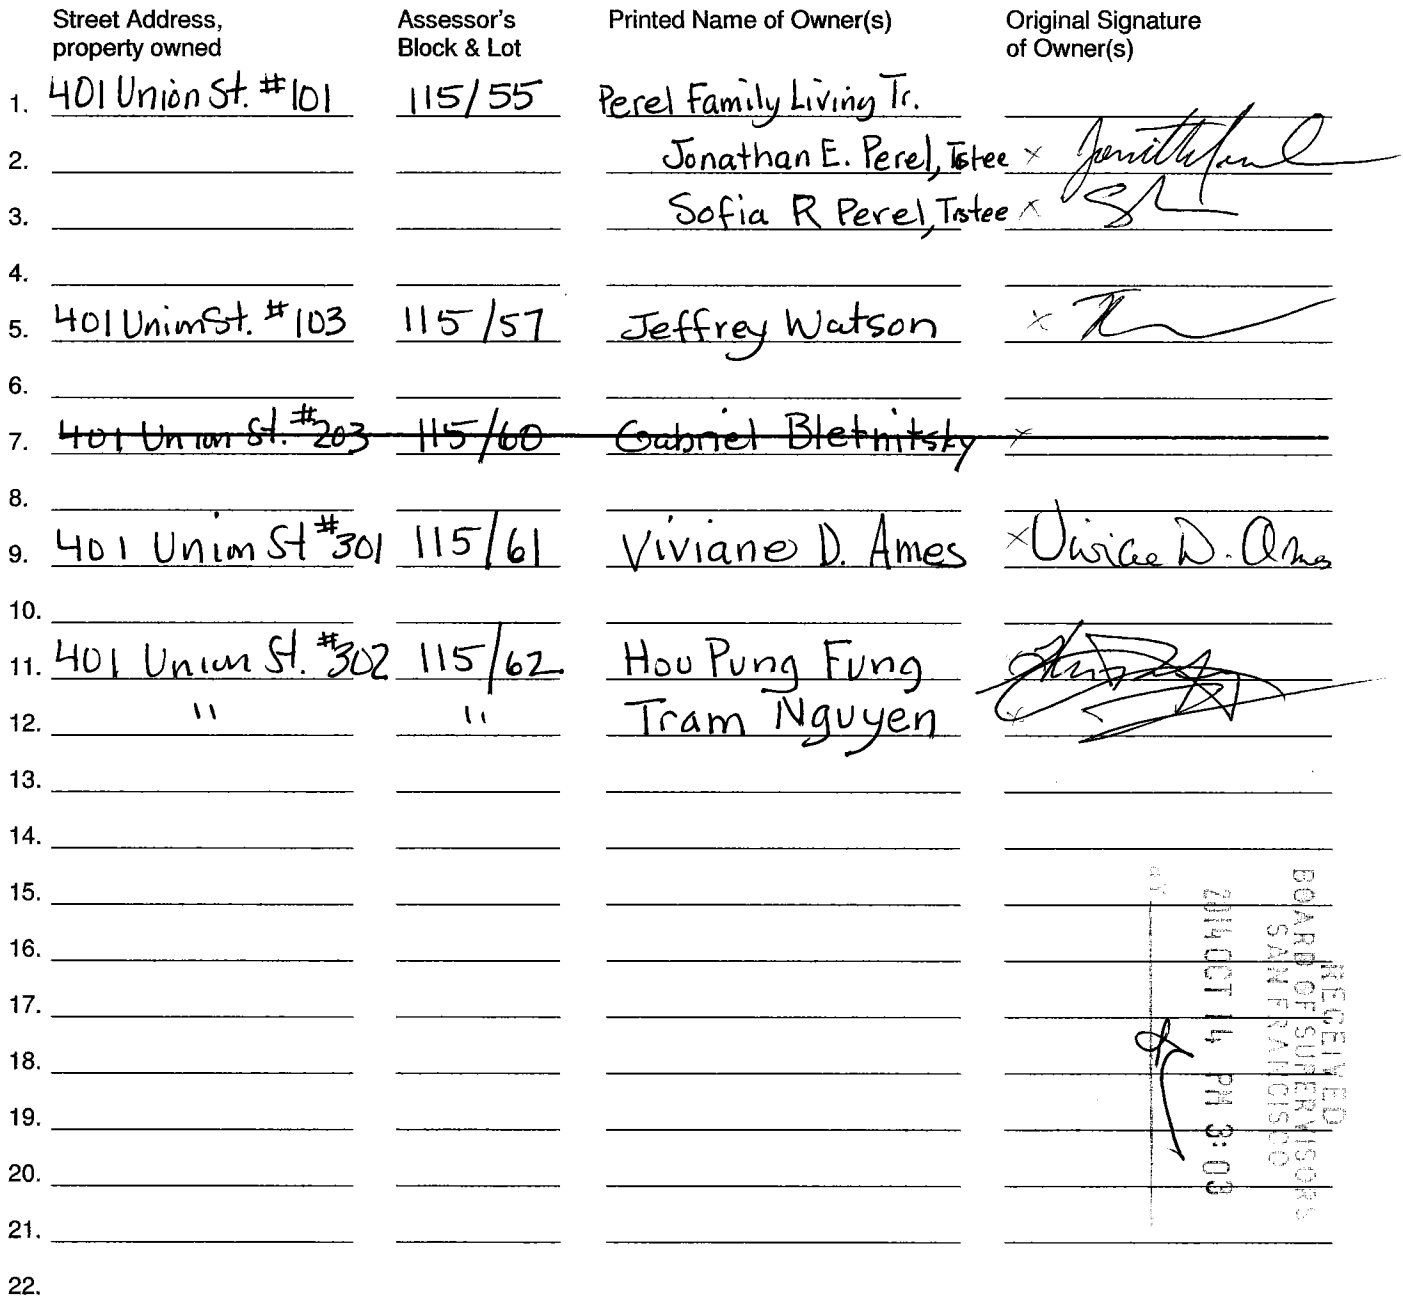 Street Address, property owned Assessor's Block & Lot Printed Name of Owner(s) Original Signature of Owner(s)
1. 401 Union St. #101 115/55 Perel Family Living Tr.
2. Jonathan E. Perel, Tstee x
3. Sofia R Perel, Trstee x
4.
5. 401 Union St. #103 115/57 Jeffrey Watson x
6.
7. 401 Union St. #203 115/60 Gabriel Bletnitsky x
8.
9. 401 Union St #301 115/61 Viviane D. Ames x Viviane D. Ames
10.
11. 401 Union St. #302 115/62 Hou Pung Fung
12. " " Tram Nguyen x
13.
14.
15.
16.
17.
18.
19.
20.
21.
22.
RECEIVED
BOARD OF SUPERVISORS
SAN FRANCISCO
2014 OCT 14 PM 3:03
BY